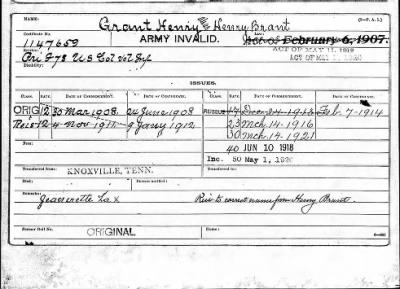 NAME: Grant Henry Henry Brant (3-F.A.I.)
Certificate No. ARMY INVALID. Act of February 6, 1907.
1147659 ACT OF MAY 11, 1912
Pri F 78 US Col Vol Inf ACT OF MAY 1, 1920
Disability:
ISSUES.
CLASS. RATE. DATE OF COMMENCEMENT. DATE OF CERTIFICATE. CLASS. RATE. DATE OF COMMENCEMENT. DATE OF CERTIFICATE.
ORIG 12 30 Mar 1908 24 June 1908 REISSUE 17 Dec 24-1913 Feb 7-1914
Reis 12 4 Nov 1911 9 Jany 1912 23 Mch 14-1916
30 Mch 14-1921
40 JUN 10 1918
Inc. 50 May 1, 1920
Transferred from
KNOXVILLE, TENN.
Died:
Remarks:
Jeanerette La X Reis to correct name from Henry Brant
Former Roll No. ORIGINAL Home: